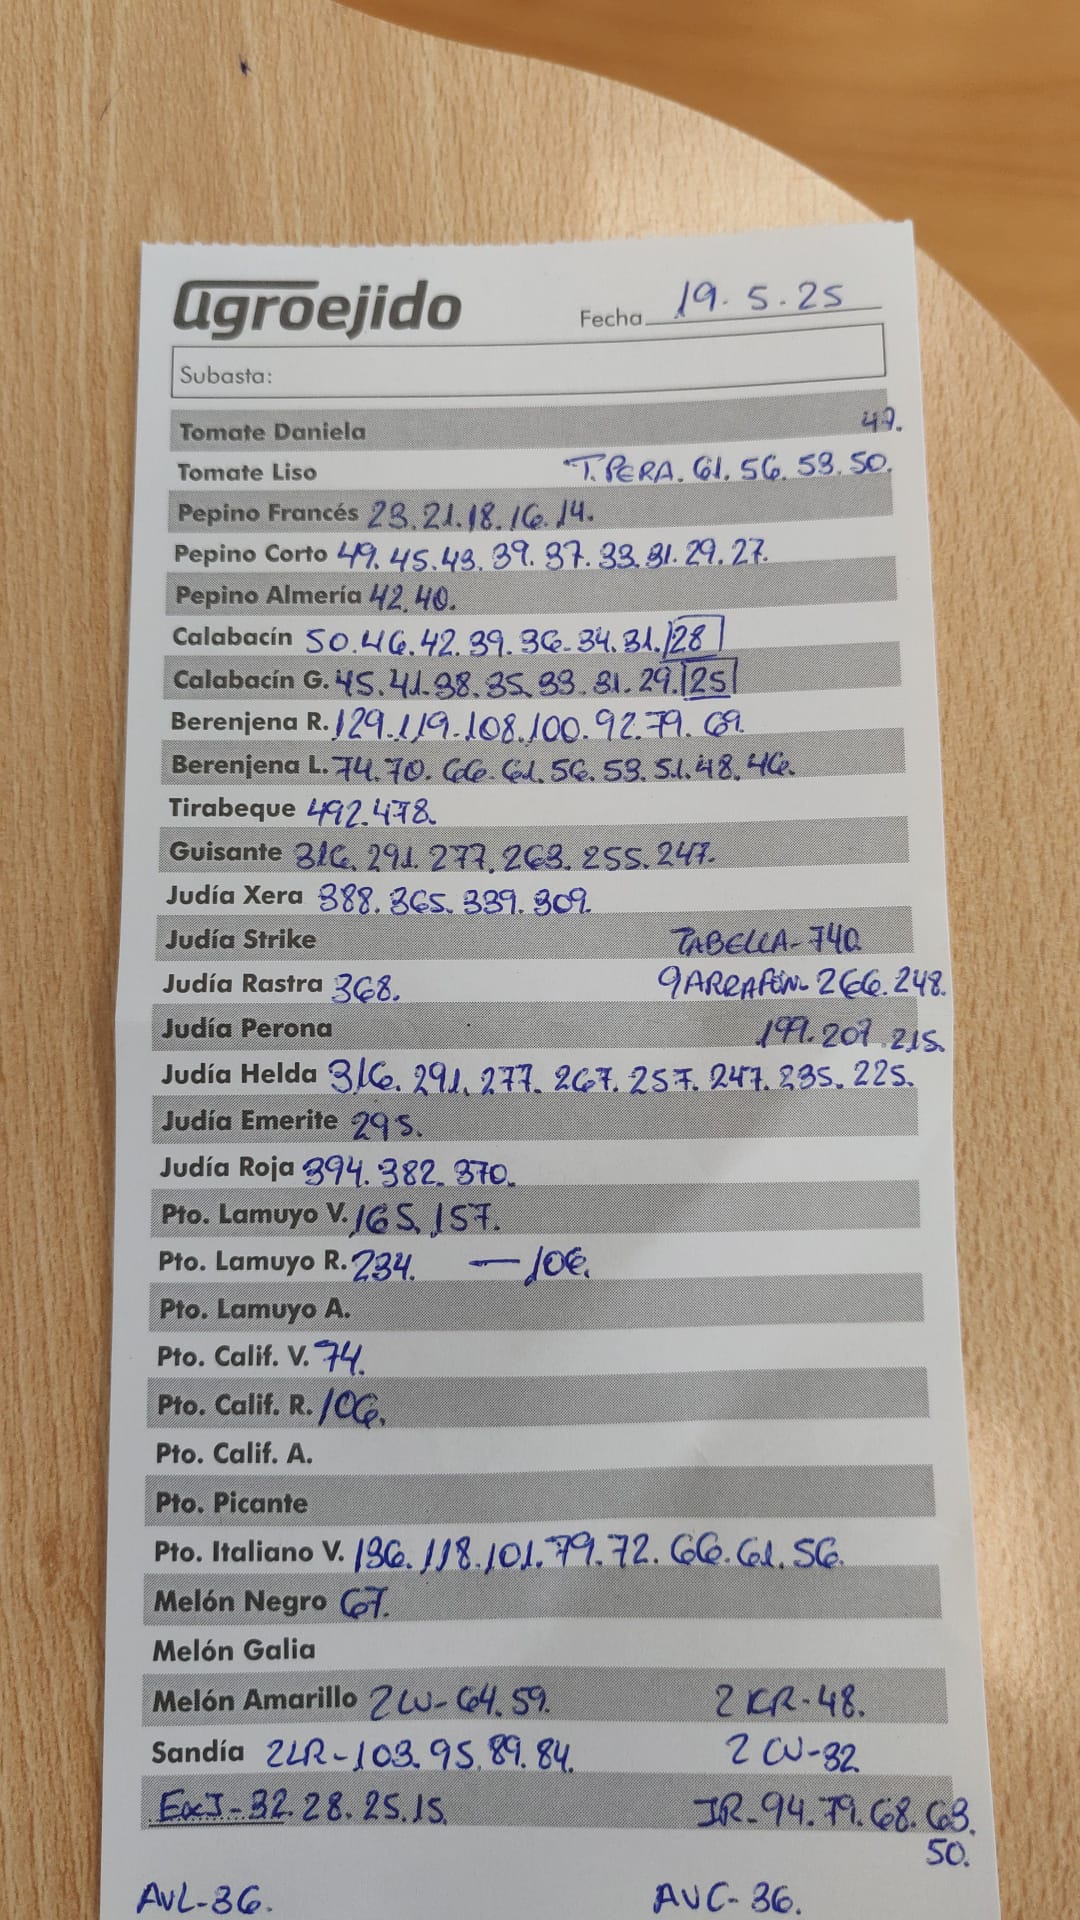 agroejido Fecha 19.5.25
Subasta:
Tomate Daniela 47.
Tomate Liso T.PERA. 61. 56. 53. 50.
Pepino Francés 23.21.18.16.14.
Pepino Corto 49.45.43.39.37.33.31.29.27.
Pepino Almería 42.40.
Calabacín 50.46.42.39.36.34.31.28
Calabacín G. 45.41.38.35.33.31.29.25
Berenjena R. 129.119.108.100.92.79.69.
Berenjena L. 74.70.66.61.56.53.51.48.46.
Tirabeque 492.478.
Guisante 316.291.277.263.255.247.
Judía Xera 388.365.339.309.
Judía Strike TABELLA-740.
Judía Rastra 368. GARRAFON-266.248.
Judía Perona 199.207.215.
Judía Helda 316.291.277.267.257.247.235.225.
Judía Emerite 295.
Judía Roja 394.382.370.
Pto. Lamuyo V. 165.157.
Pto. Lamuyo R. 234. — 106.
Pto. Lamuyo A.
Pto. Calif. V. 74.
Pto. Calif. R. 106.
Pto. Calif. A.
Pto. Picante
Pto. Italiano V. 136.118.101.79.72.66.61.56.
Melón Negro 67.
Melón Galia
Melón Amarillo 2LU-64.59. 2KR-48.
Sandía 2LR-103.95.89.84. 2CU-32
32.28.25.15. JR-94.79.68.63.
50.
AVL-36. AVC-36.